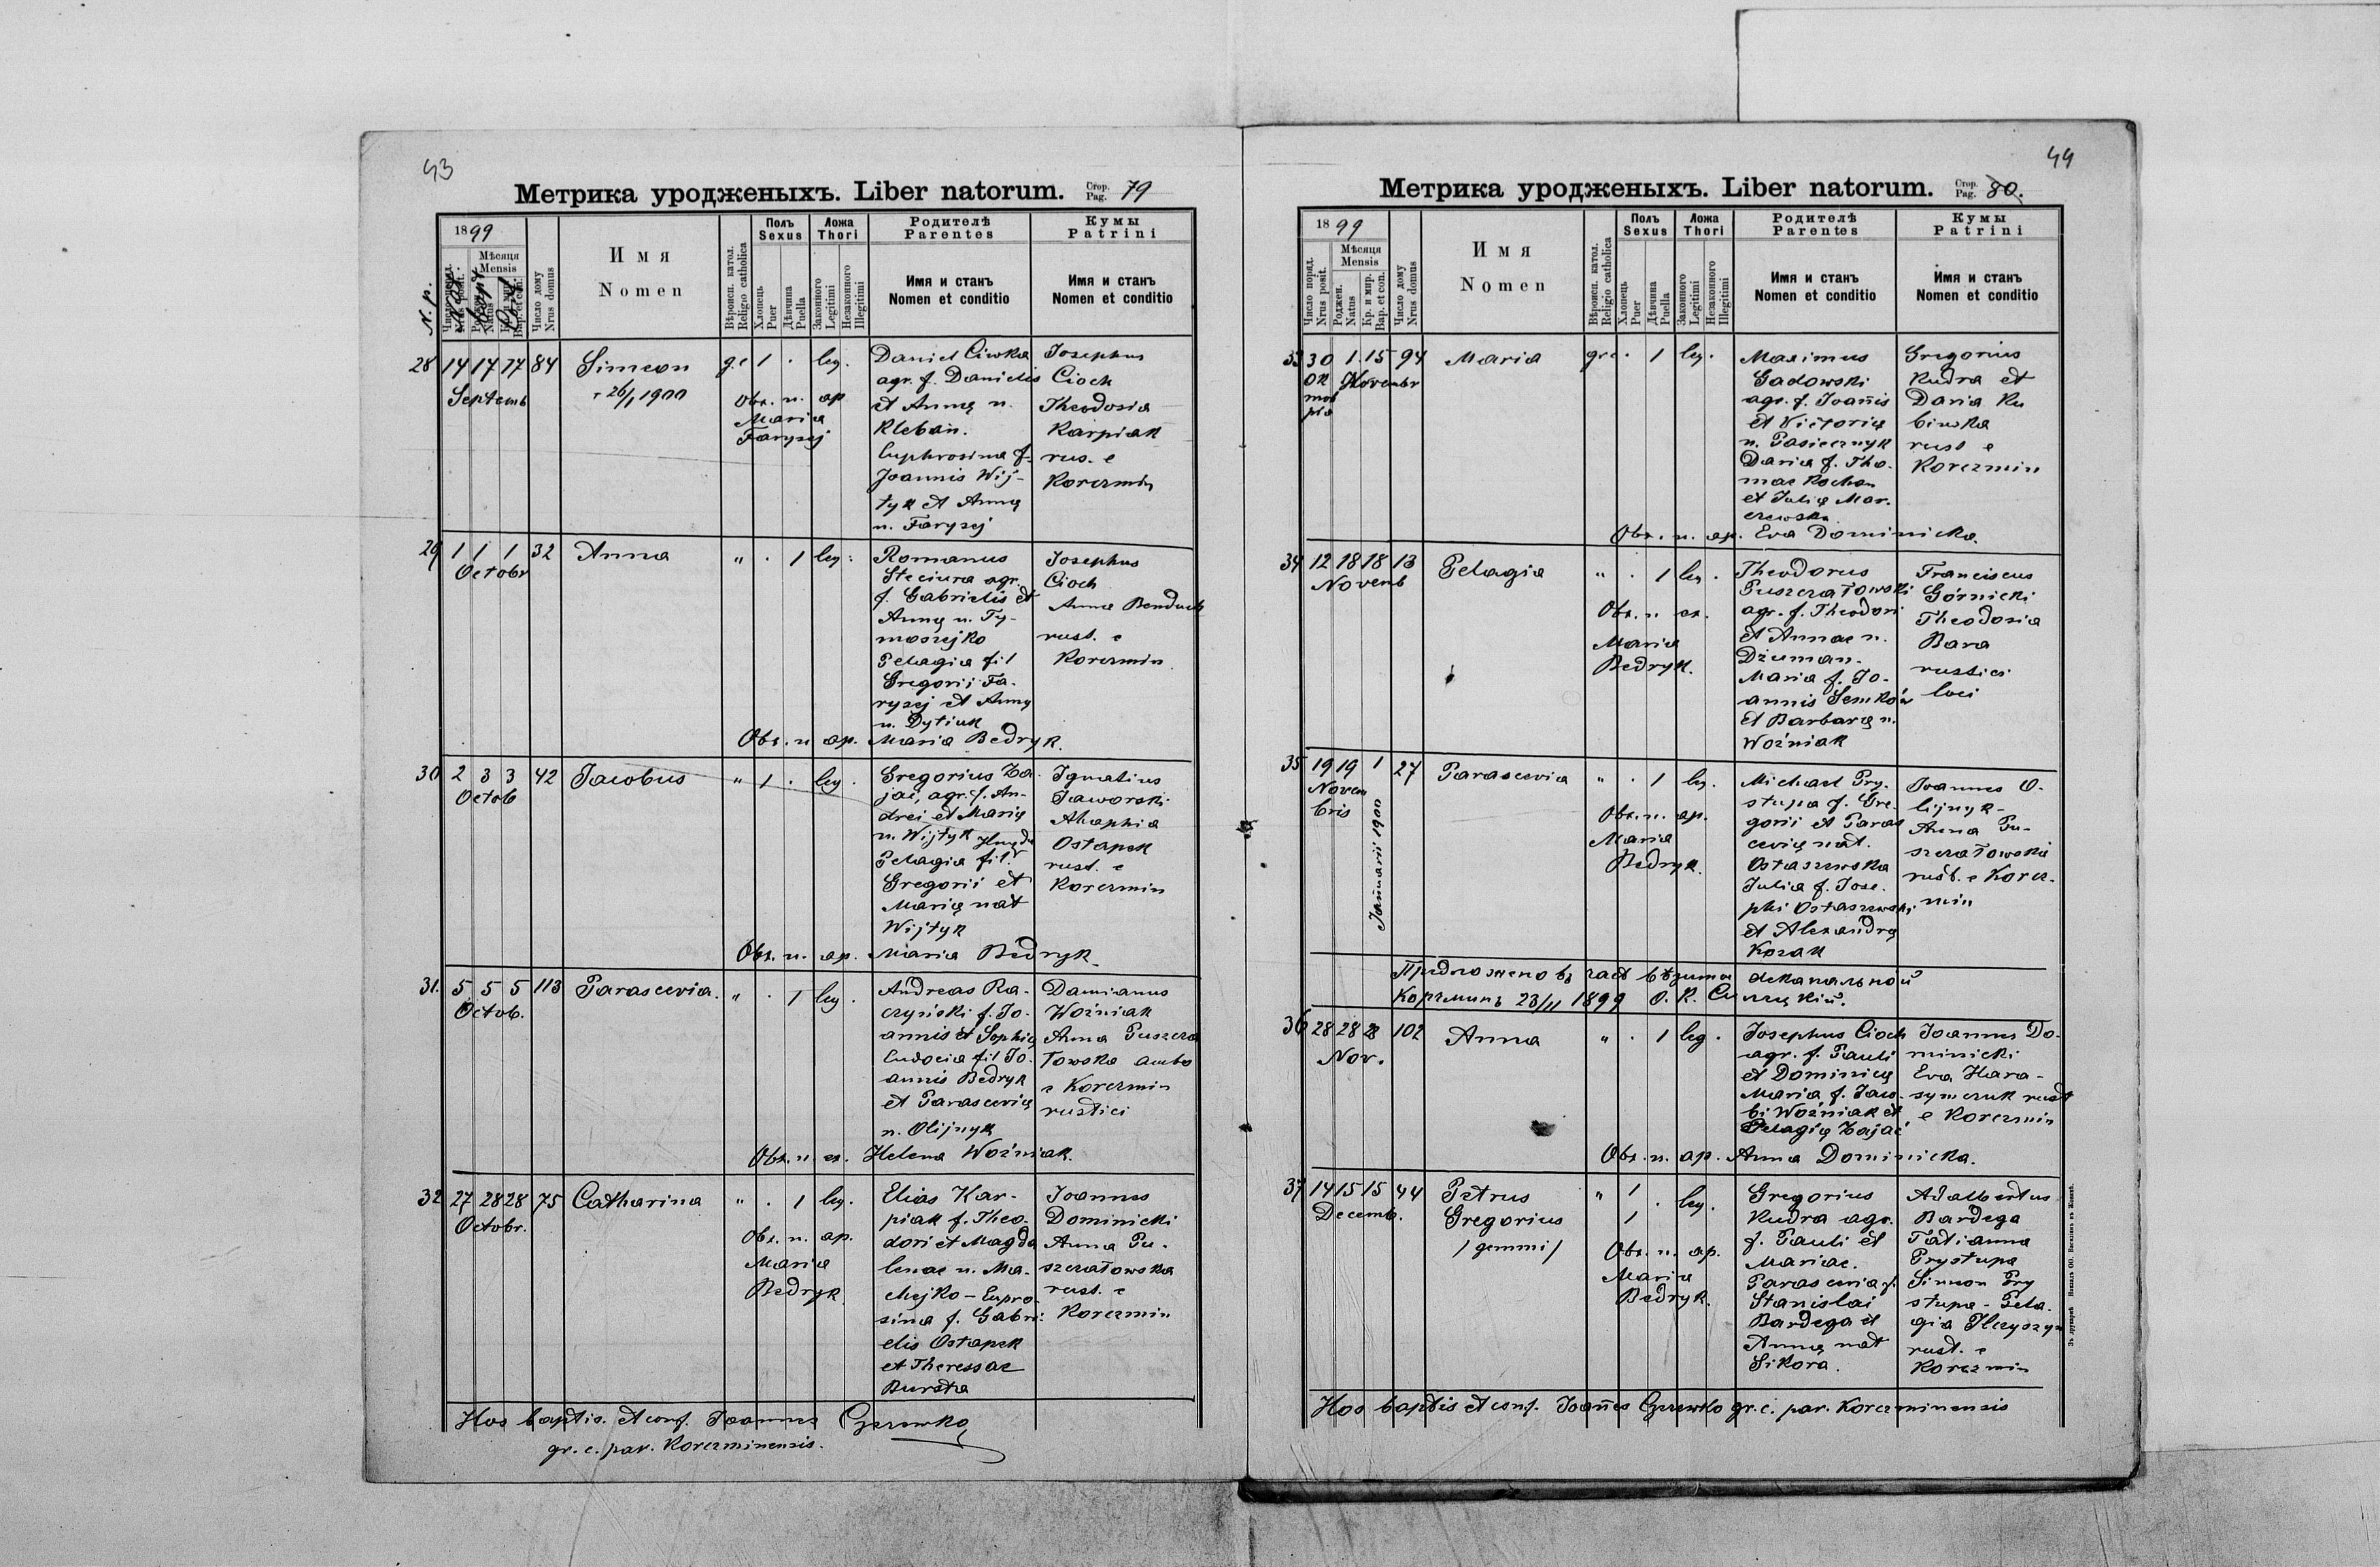 43
Метрика уродженыхъ. Liber natorum. Стор. Pag. 79
1899
N. p.
Мѣсяця
Mensis
Число дому
Nrus domus
И м я
N o m e n
Вѣроисп. катол.
Religio catholica
Полъ
Sexus
Хлопець
Puer
Дѣвчина
Puella
Ложа
Thori
Законного
Legitimi
Незаконного
Illegitimi
Родителѣ
Parentes
Имя и станъ
Nomen et conditio
Кумы
Patrini
Имя и станъ
Nomen et conditio
28 14 17 17 84
Septemb
Simeon
26/1 1900
g.c 1 . leg.
Obs. n. ap
Maria
Farysej
Daniel Ciwka
agr. f. Danielis
et Annę n.
Kleban.
Euphrosina f.
Joannis Wij-
tyk et Annę
n. Farysej
Josephus
Cioch
Theodosia
Karpiak
rus. e
Korczmin
29 1 1 1 32
Octobr
Anna
" . 1 leg.
Romanus
Steciura agr.
f. Gabrielis et
Annę n. Ty-
moszejko
Pelagia fil
Gregorii Fa-
rysej et Annę
n. Dytiuk
Josephus
Cioch
Anna Benduch
rust. e
Korczmin
Obs. n ap. Maria Bedryk.
30 2 3 3 42
Octob
Jacobus
" 1 . leg.
Gregorius Za-
jac, agr. f. An-
drei et Marię
n. Wijtyk
Pelagia fil
Gregorii et
Marię nat
Wijtyk
Ignatius
Jaworski
Ahaphia
Ostapek
rust. e
Korczmin
Obs. n. ap. Maria Bedryk
31. 5 5 5 113
Octob.
Parascevia.
" . 1 leg.
Andreas Ra-
czyński f. Jo-
annis et Sophię
Eudocia fil Jo-
annis Bedryk
et Parascevię
n. Olijnyk
Damianus
Woźniak
Anna Puszcza
towska ambo
e Korczmin
rustici
Obs. n. ex. Helena Woźniak.
32 27 28 28 75
Octobr.
Catharina
" . 1 leg.
Obs. n. ap.
Maria
Bedryk
Elias Kar-
piak f. Theo-
dori et Magda
lenae n. Ma-
mejko - Eupro-
sina f. Gabri-
elis Ostapek
et Theressae
Bursta
Joannes
Dominicki
Anna Pu-
szczatowska
rust. e
Korczmin
Hos baptis. et conf. Joannes Czerewko
gr. c. par. Korczminensis.
44
Метрика уродженыхъ. Liber natorum. Стор. Pag. 80.
1899
Число поряд.
Nrus posit.
Мѣсяця
Mensis
Роджен.
Natus
Кр. и мир.
Bap. et con.
Число дому
Nrus domus
И м я
N o m e n
Вѣроисп. катол.
Religio catholica
Полъ
Sexus
Хлопець
Puer
Дѣвчина
Puella
Ложа
Thori
Законного
Legitimi
Незаконного
Illegitimi
Родителѣ
Parentes
Имя и станъ
Nomen et conditio
Кумы
Patrini
Имя и станъ
Nomen et conditio
33 30 1 15 94
Novembr
Maria
gr c . 1 leg.
Maximus
Gadowski
agr. f. Joañis
et Victorię
n. Pasiecznyk
Daria f. Tho-
mae Kochan
et Julię Mar-
czewska
Gregorius
Kudra et
Daria Ku
binska
rust e
Korczmin
Obs. n. ap. Eva Dominicka.
34 12 18 18 13
Novemb
Pelagia
" . 1 leg.
Obs. n. ex.
Maria
Bedryk.
Theodorus
Puszczatowski
agr. f. Theodori
et Annae n.
Dziuman.
Maria f. Jo-
annis Semków
et Barbarę n.
Woźniak
Franciscus
Górnicki
Theodosia
Bara
rustici
loci
35 19 19 1 27
Novem
bris
Januarii 1900
Parascevia
" . 1 leg.
Obs. n. ap.
Maria
Bedryk.
Michael Pry-
stupa f. Gre-
gorii et Paras
cevię nat.
Ostaszewska
Julia f. Jose-
phi Ostaszewski
et Alexandrę
Kozak
Joannes O-
lijnyk-
Anna Pu-
szczatowska
rust. e Korcz-
min
Предложено въ часѣ візиты деканальной
Корчминъ 23/11 1899
36 28 28 28 102
Nov.
Anna
" . 1 leg.
Josephus Cioch
agr. f. Pauli
et Dominicę
Maria f. Jaco-
bi Woźniak et
Pelagię Zajac
Joannes Do-
minicki
Eva Hara-
symczuk rust
e Korczmin
Obs. n. ap. Anna Dominicka.
37 14 15 15 44
Decemb.
Petrus
Gregorius
/gemmi/
" 1 . leg.
1
Obs. n. ap.
Maria
Bedryk.
Gregorius
Kudra agr.
f. Pauli et
Mariae.
Parascevia f.
Stanislai
Bardega et
Annę nat
Sikora.
Adalbertus
Bardega
Tatianna
Prystupa
Simeon Pry
stupa - Pela-
gia
rust. e
Korczmin
Hos baptis et conf. Joañes Czerewko gr. c. par. Korczminensis